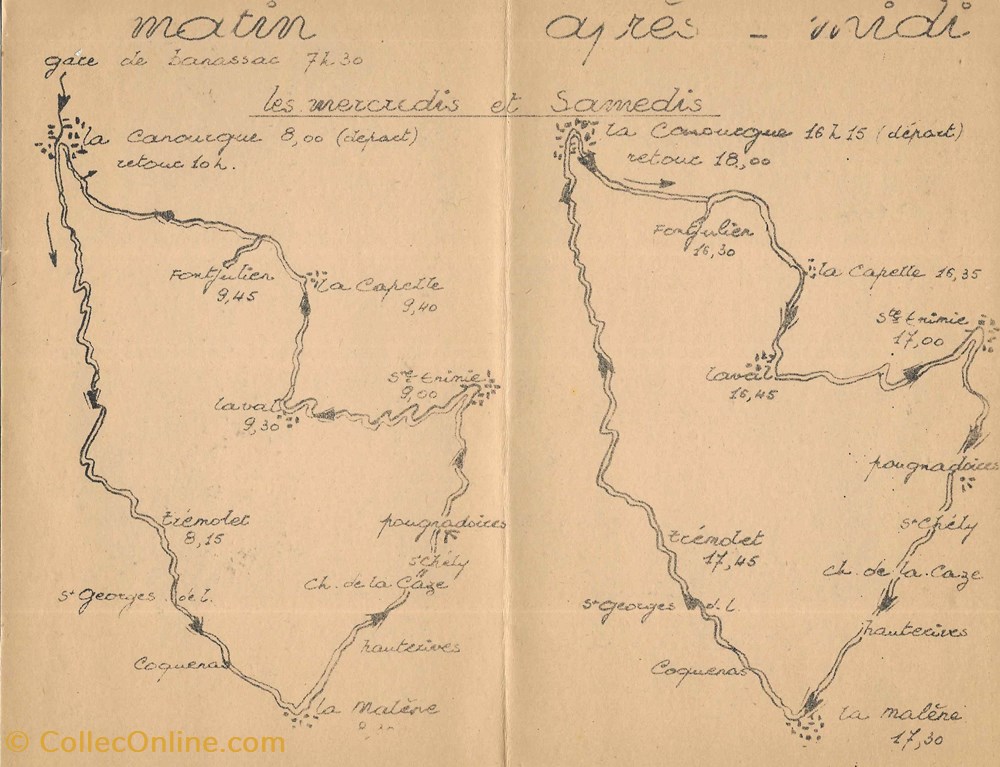 matin
gare de Banassac 7h30
les mercredis et Samedis
la Canourgue 8,00 (départ)
retour 10h.
Fontjulien
9,45
la Capelle
9,40
Ste Enimie
9,00
laval
9,30
trémolet
8,15
pougnadoires
St Chély
Ch. de la Caze
St Georges de L.
hauterives
Coquenas
la Malène
après-midi
la Canourgue 16h15 (départ)
retour 18,00
Fontjulien
16,30
la Capelle 16,35
Ste Enimie
17,00
laval
16,45
pougnadoires
St Chély
trémolet
17,45
Ch. de la Caze
St Georges d.L.
hauterives
Coquenas
la malène
17,30
© CollecOnline.com